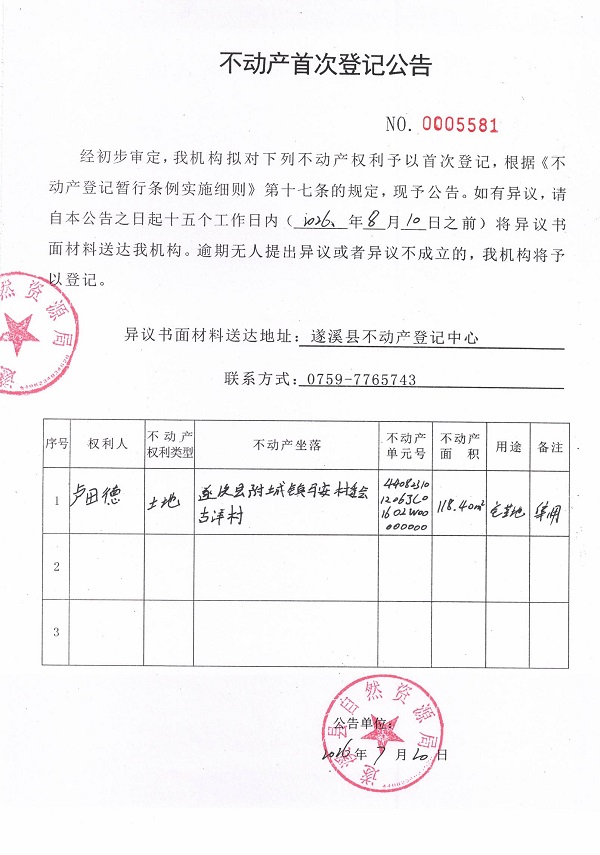 不动产首次登记公告
NO. 0005581
经初步审定，我机构拟对下列不动产权利予以首次登记，根据《不
动产登记暂行条例实施细则》第十七条的规定，现予公告。如有异议，请
自本公告之日起十五个工作日内（2026年8月10日之前）将异议书
面材料送达我机构。逾期无人提出异议或者异议不成立的，我机构将予
以登记。
然资源局
遂
异议书面材料送达地址：遂溪县不动产登记中心
联系方式：0759-7765743
序号 权利人 不动产权利类型 不动产坐落 不动产单元号 不动产面积 用途 备注
1 卢田德 土地 遂溪县附城镇 村委会 118.40m² 宅基地 单用
古洋村
2
3
遂溪县自然资源局
公告单位：
2026年7月20日